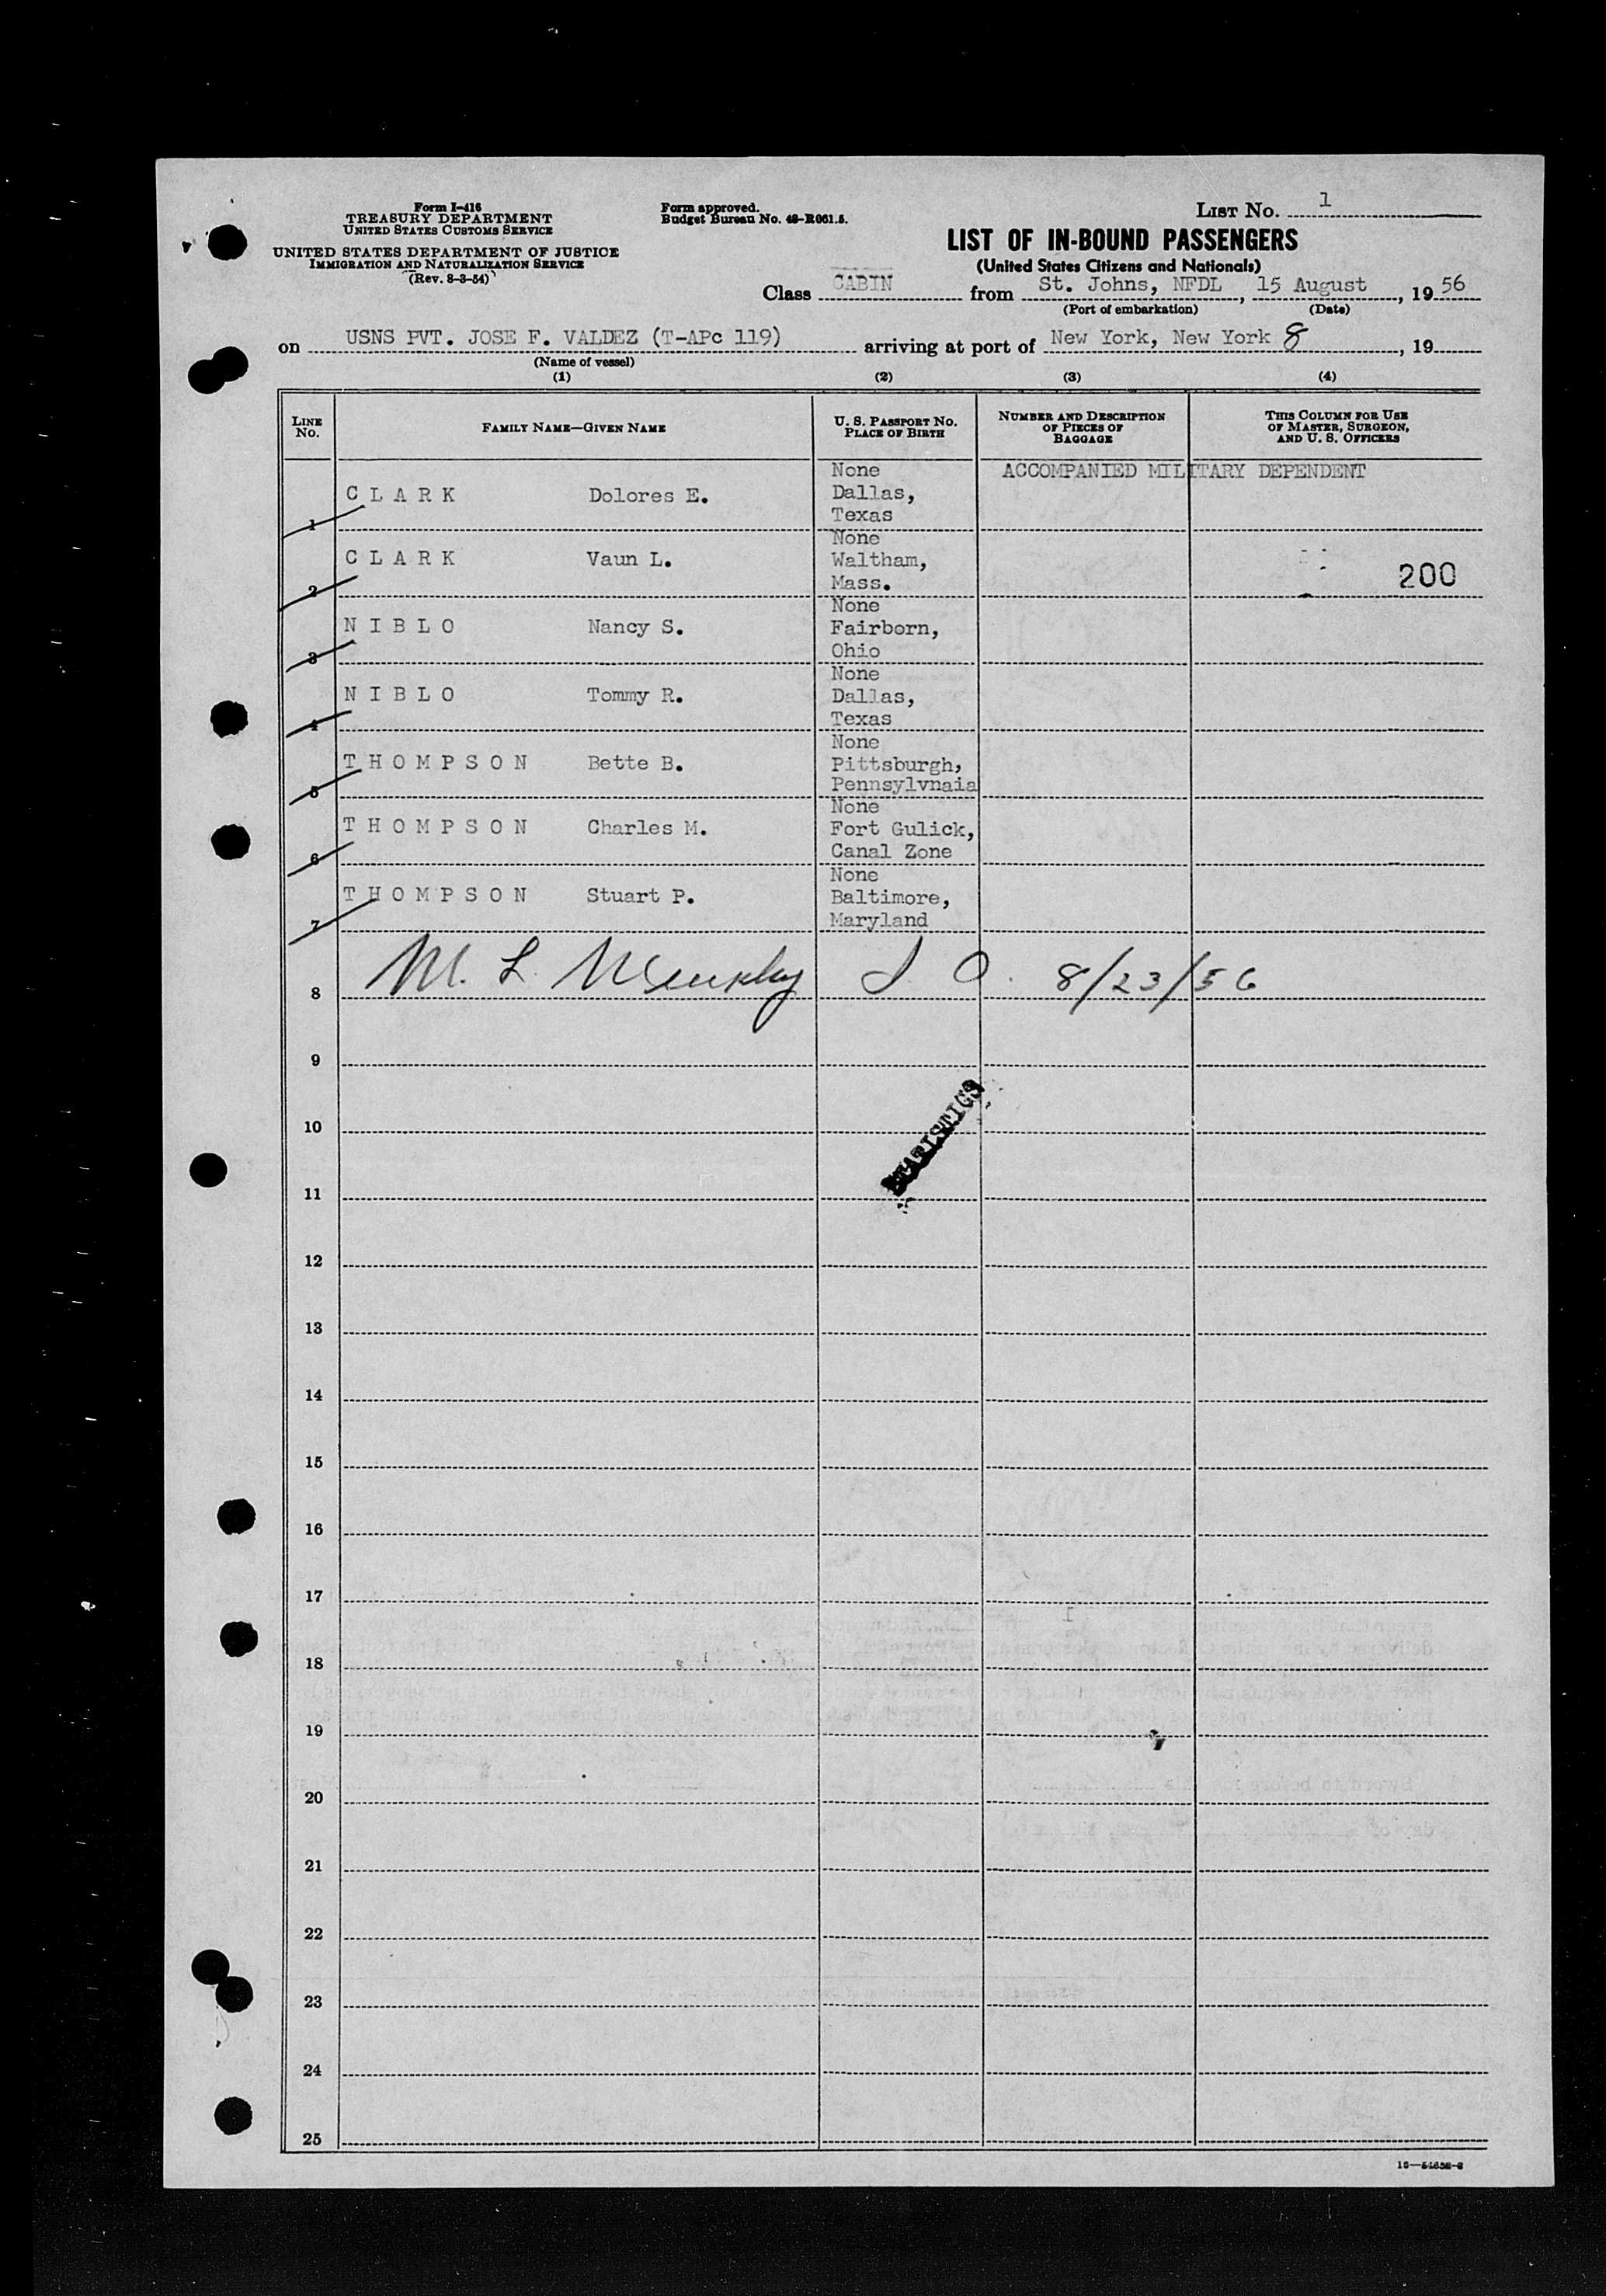 Form I-416
TREASURY DEPARTMENT
UNITED STATES CUSTOMS SERVICE
UNITED STATES DEPARTMENT OF JUSTICE
IMMIGRATION AND NATURALIZATION SERVICE
(Rev. 8-3-54)
Form approved.
Budget Bureau No. 43-R061.5.
LIST No. 1
LIST OF IN-BOUND PASSENGERS
(United States Citizens and Nationals)
Class CABIN from St. Johns, NFDL, 15 August, 19 56
(Port of embarkation) (Date)
on USNS PVT. JOSE F. VALDEZ (T-APc 119) arriving at port of New York, New York 8, 19
(Name of vessel)
(1) (2) (3) (4)
LINE No.
FAMILY NAME—GIVEN NAME
U. S. PASSPORT No.
PLACE OF BIRTH
NUMBER AND DESCRIPTION
OF PIECES OF
BAGGAGE
THIS COLUMN FOR USE
OF MASTER, SURGEON,
AND U. S. OFFICERS
None ACCOMPANIED MILITARY DEPENDENT
CLARK Dolores E. Dallas,
1 Texas
None
CLARK Vaun L. Waltham,
200
2 Mass.
None
NIBLO Nancy S. Fairborn,
3 Ohio
None
NIBLO Tommy R. Dallas,
4 Texas
None
THOMPSON Bette B. Pittsburgh,
5 Pennsylvnaia
None
THOMPSON Charles M. Fort Gulick,
6 Canal Zone
None
THOMPSON Stuart P. Baltimore,
7 Maryland
8 M. L. I. O. 8/23/56
9
STATISTICS
10
11
12
13
14
15
16
17
18
19
20
21
22
23
24
25